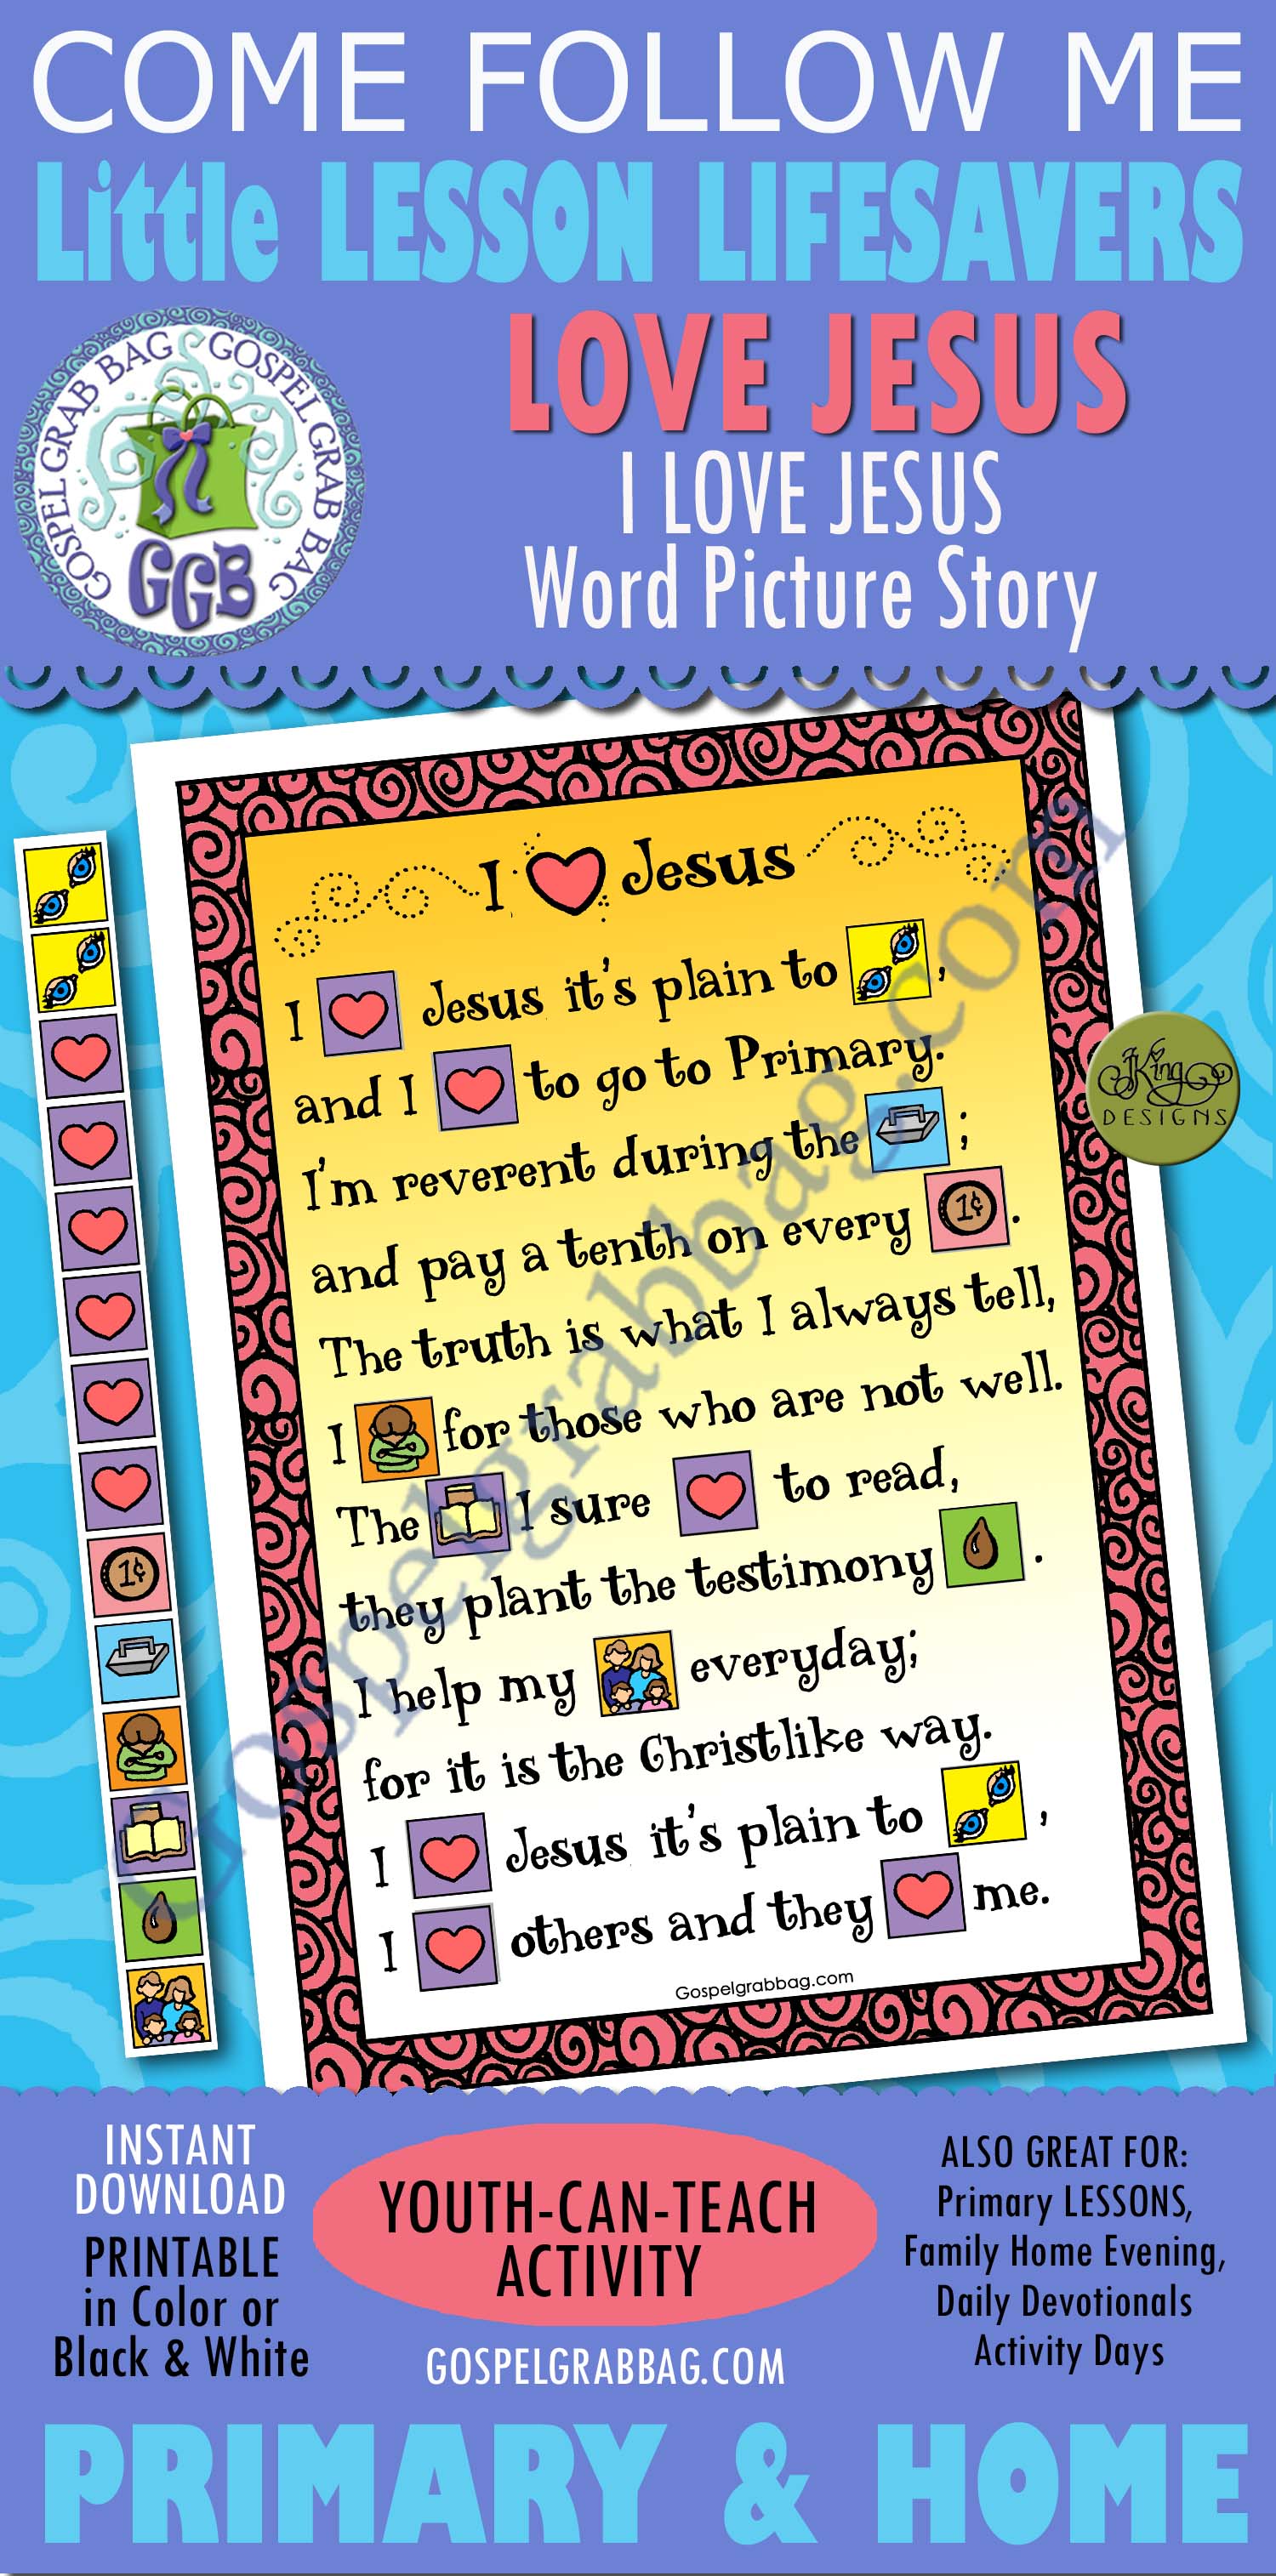 COME FOLLOW ME
Little LESSON LIFESAVERS
GOSPEL GRAB BAG GOSPEL GRAB BAG
GGB
LOVE JESUS
I LOVE JESUS
Word Picture Story
I Jesus
I Jesus it's plain to ,
and I to go to Primary.
I'm reverent during the ;
and pay a tenth on every 1¢ .
The truth is what I always tell,
I for those who are not well.
The I sure to read,
they plant the testimony .
I help my everyday;
for it is the Christlike way.
I Jesus it's plain to ,
I others and they me.
Gospelgrabbag.com
1¢
Gospelgrabbag.com
King
DESIGNS
INSTANT
DOWNLOAD
PRINTABLE
in Color or
Black & White
YOUTH-CAN-TEACH
ACTIVITY
GOSPELGRABBAG.COM
ALSO GREAT FOR:
Primary LESSONS,
Family Home Evening,
Daily Devotionals
Activity Days
PRIMARY & HOME